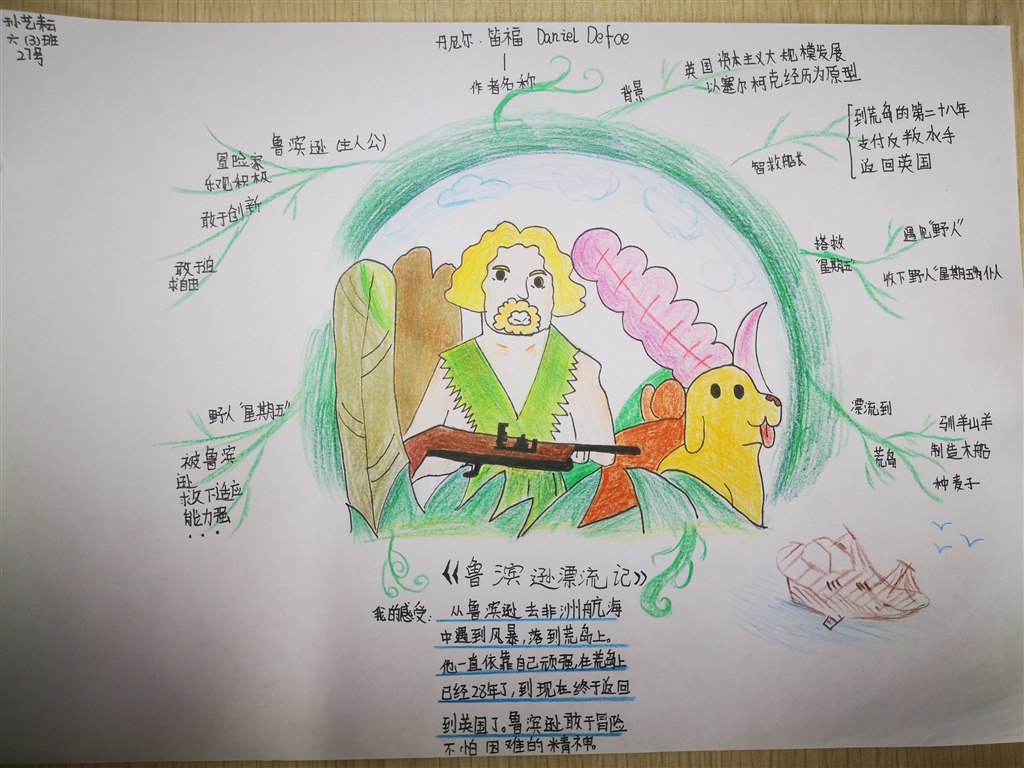 孙艺耘
六(3)班
27号
丹尼尔·笛福 Daniel Defoe
作者名称
背景
英国资本主义大规模发展
以塞尔柯克经历为原型
智救船长
到荒岛的第二十八年
支付反叛水手
返回英国
搭救
"星期五"
遇见"野人"
收下野人"星期五"为仆人
漂流到
荒岛
驯羊山羊
制造木船
种麦子
鲁滨逊(主人公)
冒险家
乐观积极
敢于创新
敢于追
求自由
野人"星期五"
被鲁滨
逊
救下适应
能力强
...
《鲁滨逊漂流记》
我的感受: 从鲁滨逊去非洲航海
中遇到风暴,落到荒岛上。
他一直依靠自己顽强,在荒岛上
已经28年了,到现在终于返回
到英国了。鲁滨逊敢于冒险
不怕困难的精神。